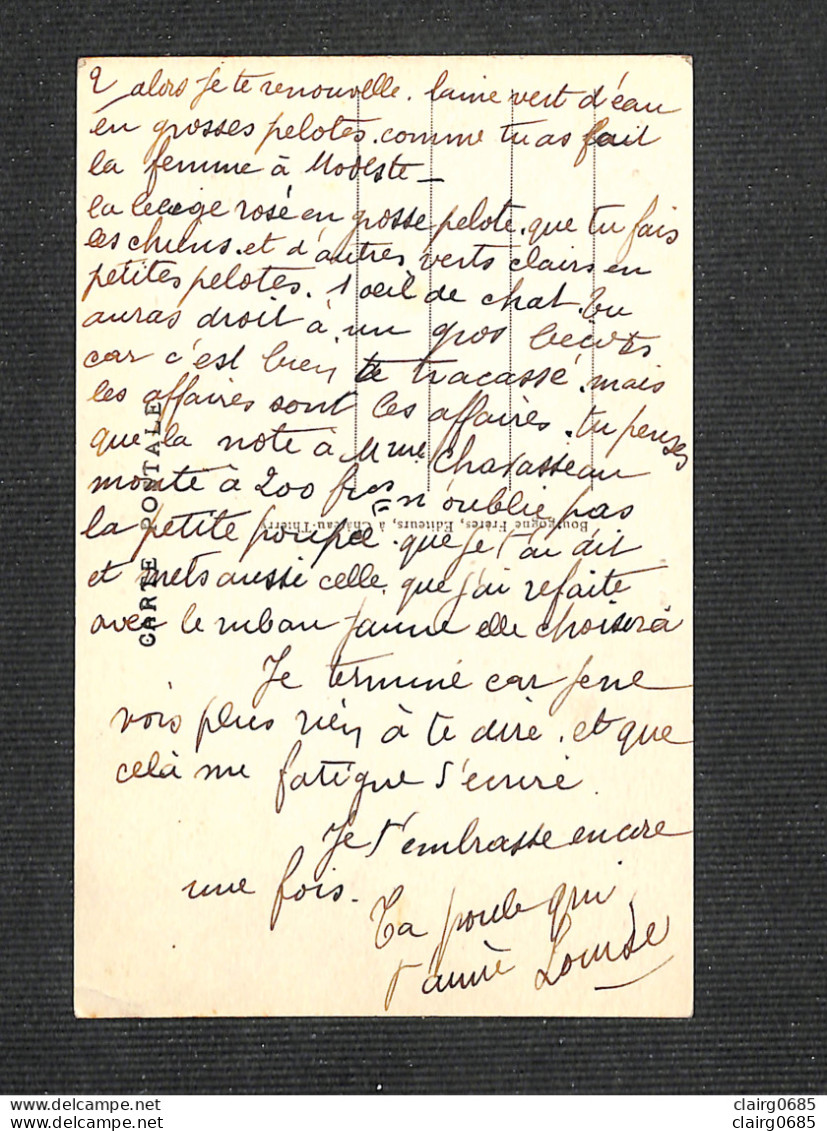 2 alors je te renouvelle. laine vert d'eau
en grosses pelotes. comme tu as fait
la femme à Modeste_
la beige rosé en grosse pelote. que tu fais
les chiens. et d'autres verts clairs en
petites pelotes. 1 oeil de chat. Tu
auras droit à un gros
car c'est bien te tracassé. mais
les affaires sont les affaires. tu penses
que la note à Mme Chavasseau
monte à 200 frs = n'oublie pas
la petite poupée. que je t'ai dit
et mets aussi celle que j'ai refaite
avec le ruban jaune elle choisira
Je terminé car je ne
vois plus rien à te dire. et que
celà me fatigue d'écrire
Je t'embrasse encore
une fois.
Ta poule qui
t'aime Louise
CARTE POSTALE
Bourgogne Frères, Éditeurs, à Château-Thierry
clairg0685
clairg0685
clairg0685
clairg0685